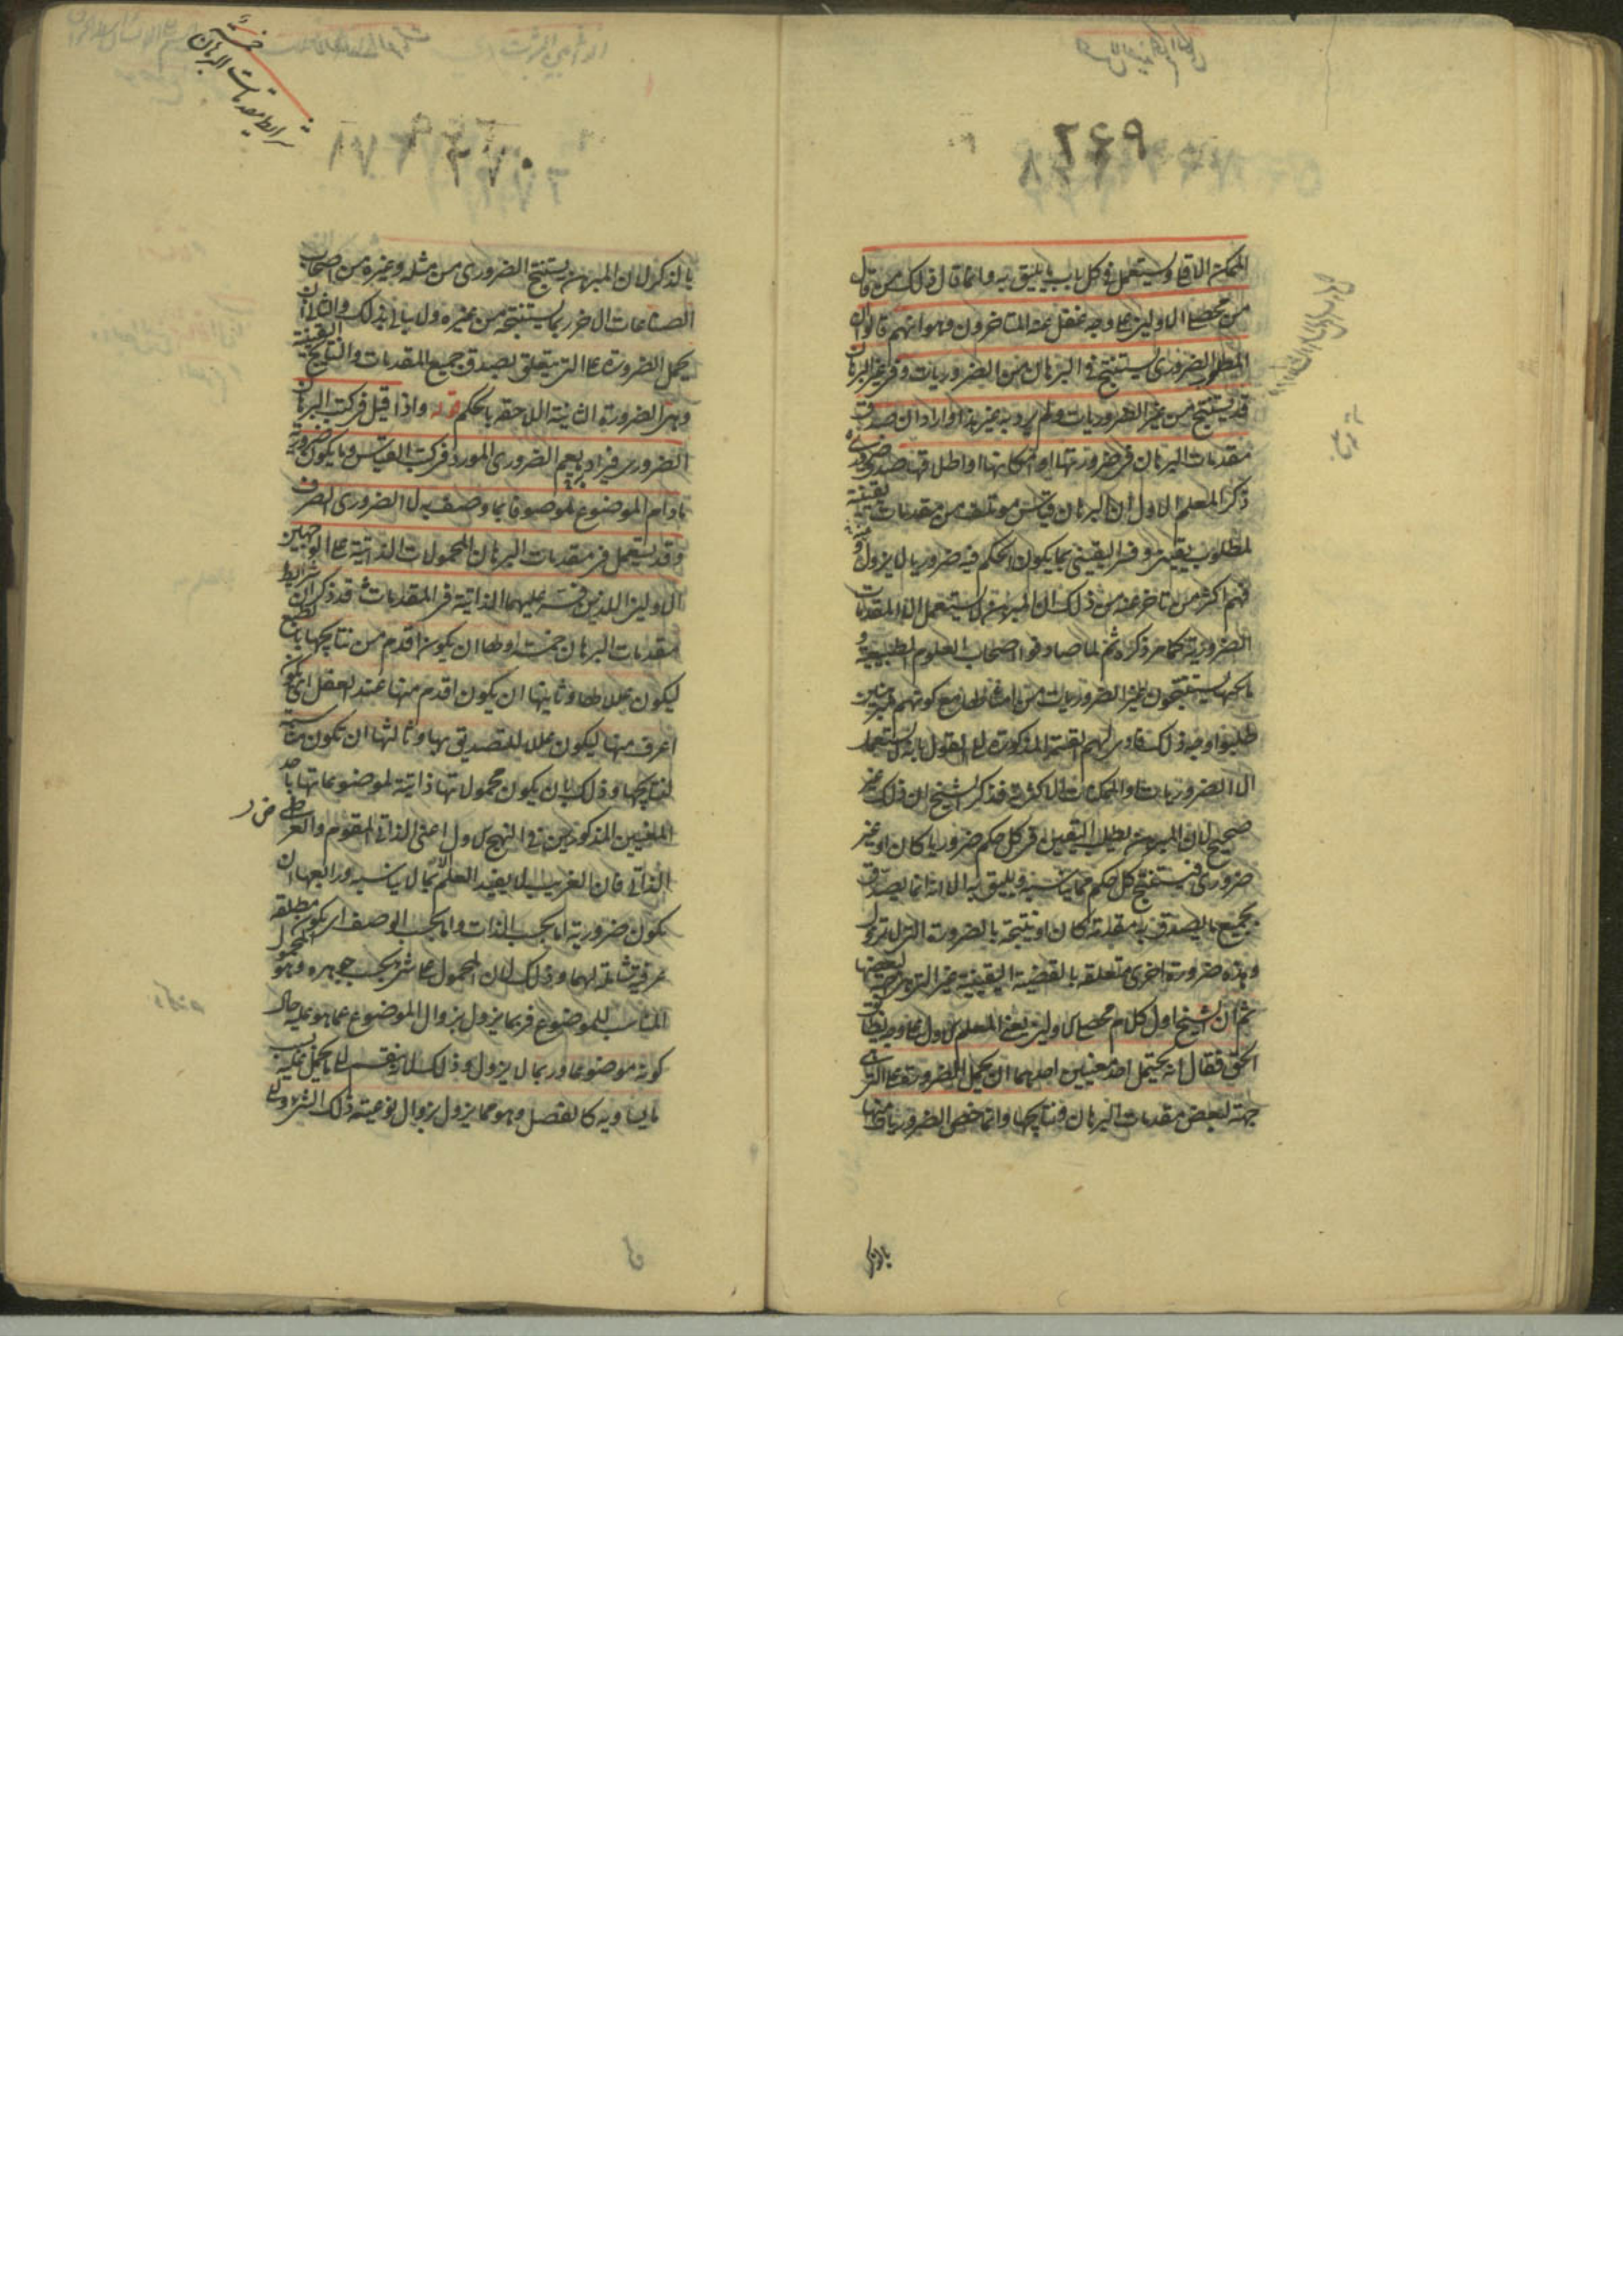 ٢٦٩
الممكن الاقلى ويستعمل فى كل باب ما يليق به وانما قال ذلك من قال
من محصلى الاولين على وجه غفل عنه المتاخرون وهو انهم قالوا ان
المطلوب الضرورى يستنتج فى البرهان من الضروريات وفى غير البرهان
قد يستنتج من غير الضروريات ولم يرد به غير هذا او اراد ان صدق
مقدمات البرهان فى ضرورتها او امكانها او اطلاقها صدق ضرورى
ذكر المعلم الاول ان البرهان قياس مؤتلف من مقدمات يقينية
لمطلوب يقينى وفسر اليقينى بما يكون الحكم فيه ضروريا لا يزول
فهم اكثر من تاخر عنه من ذلك ان المبرهن لا يستعمل الا المقدمات
الضرورية كما مر ذكره ثم لما صادفوا اصحاب العلوم الطبيعية و
يستنتجون غير الضروريات من امثالها مع كونهم مبرهنين
طلبوا وجه ذلك فادى بهم القسمة المذكورة الى القول بانه لا يستعمل
الا الضروريات والممكنات الاكثرية فذكر الشيخ ان ذلك غير
صحيح لان المبرهن يطلب اليقين فى كل حكم ضروريا كان او غير
ضرورى فيستنتج كل حكم مما يناسبه ويليق به الا انه انما يصدق
بجميع ما يصدق به مقدمة كان او نتيجة بالضرورة التى لا تزول
وهذه ضرورة اخرى متعلقة بالقضية اليقينية غير التى هى جهة لبعضها
ثم ان الشيخ اول كلام محصلى الاولين يعنى المعلم الاول على وجه يطابق
الحق فقال انه يحتمل احد معنيين احدهما ان يحمل الضرورة على التى هى
جهة لبعض مقدمات البرهان ونتايجها وانما خص الضروريات منها
بالذكر
٢٧٠
شرايط مقدمات البرهان خمسة
بالذكر لان المبرهن يستنتج الضرورى من مثله وغيره من اصحاب
الصناعات الاخر ربما يستنتجه من غيره ولا يبالى بذلك والثانى ان
يحمل الضرورة على التى يتعلق بصدق جميع المقدمات والنتايج اليقينية
وهى الضرورة الثانية اللاحقة بالحكم قوله واذا قيل فى كتاب البرهان
الضرورى فيراد به ما يعم الضرورى المورد فى كتاب القياس وما يكون ضرورته
ما دام الموضوع موصوفا بما وصف به لا الضرورى الصرف
وقد يستعمل فى مقدمات البرهان المحمولات الذاتية على الوجهين
الاولين اللذين فسر عليهما الذاتية فى المقدمات قد ذكر ان شرايط
مقدمات البرهان خمسة اولها ان يكون اقدم من نتايجها بالطبع
ليكون عللا لها وثانيها ان يكون اقدم منها عند العقل اى يكون
اعرف منها ليكون عللا للتصديق بها وثالثها ان تكون مناسبة
لنتايجها وذلك بان يكون محمولاتها ذاتية لموضوعاتها باحد
المعنيين المذكورين فى النهج الاول اعنى الذاتى المقوم والعرض
الذاتى فان الغريب لا يفيد العلم بما لا يناسبه ورابعها ان
يكون ضرورية اما بحسب الذات واما بحسب الوصف اى يكون مطلقة
عرفية شاملة لهما وذلك لان المحمول على شىء بحسب جوهره وهو المحمول
المناسب للموضوع فربما يزول بزوال الموضوع عما هو عليه حال
كونه موضوعا وربما لا يزول وذلك لانه ينقسم الى ما يحمل عليه بسبب
ما يساويه كالفصل وهو مما يزول بزوال نوعيته ذلك الشىء والى